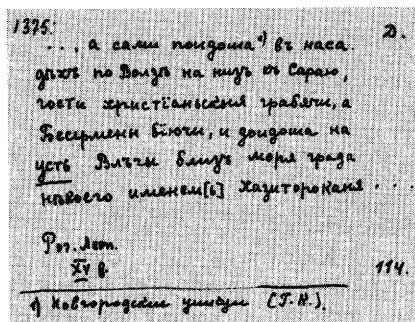 1375. Д.
..., а сами поидоша¹⁾ въ наса
дѣхъ по Волзѣ на низъ къ Сараю,
гости христіаньскыя грабячи, а
Бесермены біючи, и доидоша на
усть Влъгы близъ моря града
нѣкоего именем[ъ] Хазитороканя ...
Рог. Лет.
XV в. 114.
¹⁾ Новгородскии ушкуи (Г.К.).